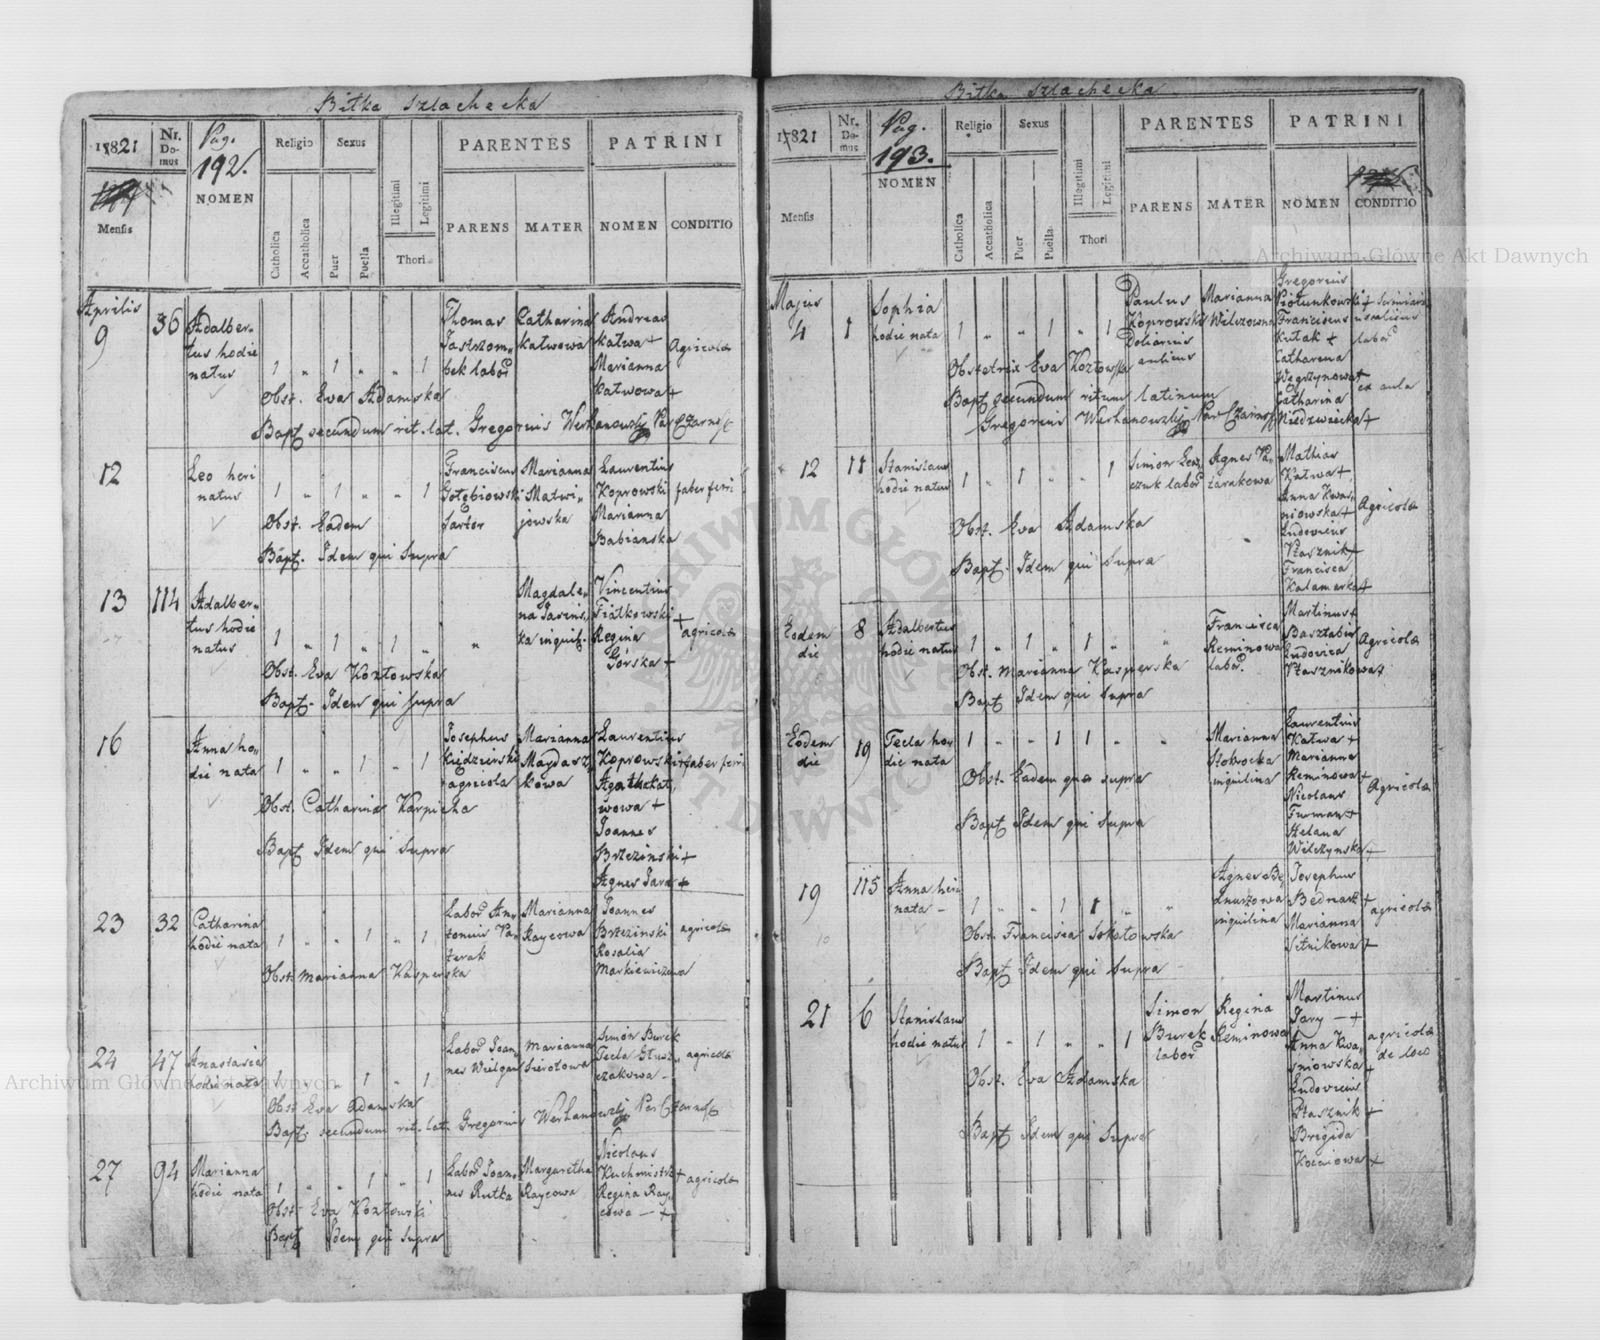 Bitka Szlachecka
17821
Nr. Domus
Pag. 192.
NOMEN
Religio
Sexus
PARENTES
PATRINI
Mensis
Catholica
Accatholica
Puer
Puella
Illegitimi
Legitimi
Thori
PARENS
MATER
NOMEN
CONDITIO
Aprilis
9
36
Adalber-
tus hodie
natus
1 " 1 " " 1
Thomas
Jastrzom-
bek labor
Catharina
Katwowa
Andreas
Katwa +
Marianna
Katwowa +
Agricola
Obst. Eva Adamska
Bapt secundum rit. lat. Gregorius
12
Leo heri
natus
1 " 1 " " 1
Franciscus
Gołębiowski
Sartor
Marianna
Matwi-
jowska
Laurentius
Koprowski
Marianna
Babianska
faber ferri
Obst. Eadem
Bapt. Idem qui supra
13
114
Adalber-
tus hodie
natus
1 " 1 " 1 "
"
Magdale-
na Jasins-
ka inquil.
Vincentius
Fiatkowski
Regina
Górska +
+
agricola
Obst. Eva Kozłowska
Bapt. Idem qui supra
16
Anna ho-
die nata
1 " " 1 " 1
Josephus
agricola
Marianna
Magdasz-
kowa
Laurentius
Koprowski
Agatha Kat-
wowa +
Joannes
Brzezinski +
Agnes Jara +
faber ferri
Obst. Catharina Karpicha
Bapt Idem qui supra
23
32
Catharina
hodie nata
1 " " 1 " 1
Labor An-
tonius Pa-
zerak
Marianna
Raycowa
Joannes
Brzezinski
Rosalia
Markiewiczowa
agricola
Obst. Marianna Kasperska
24
47
Anastasia
hodie nata
1 " " 1 " 1
Labor Joan-
nes Wielgan
Marianna
Sierotowa
Simon Burek
Tecla
agricola
Obst Eva Adamska
Bapt. secundum rit. lat. Gregorius
27
94
Marianna
hodie nata
1 " " 1 " 1
Labor Joan-
nes Rutka
Margaretha
Raycowa
Nicolaus
Kuchmistrz
Regina Ray-
cowa — +
+ agricola
Obst. Eva Kozłowski
Bapt Idem qui supra
Bitka Szlachecka
17821
Nr. Domus
Pag. 193.
NOMEN
Religio
Sexus
PARENTES
PATRINI
Mensis
Catholica
Accatholica
Puer
Puella
Illegitimi
Legitimi
Thori
PARENS
MATER
NOMEN
CONDITIO
Majus
4
1
Sophia
hodie nata
1 " " 1 " 1
Paulus
Koprowski
Doliarius
aulicus
Marianna
Wilczowna
Gregorius
Piotunkowski +
Franciscus
Kutak +
Catharina
Węgrzynowa +
Catharina
Niedzwiecka +
labor
ex aula
Obstetrix Eva Kozłowska
Bapt secundum ritum latinum
Gregorius
12
11
Stanislaus
hodie natus
1 " 1 " " 1
Simon Lesz-
czuk labor
Agnes Pa-
zarakowa
Mathias
Katwa +
Anna Kwas-
niowska +
Ludovicus
Ptasznik +
Francisca
Kalamarka +
Agricola
Obst. Eva Adamska
Bapt. Idem qui supra
Eodem
die
8
Adalbertus
hodie natus
1 " 1 " 1 " "
Francisca
Reminowa
labor.
Martinus +
Basztabin
Ludovica
Ptasznikowa +
Agricola
Obst. Marianna Kasperska
Bapt Idem qui supra
Eodem
die
19
Tecla ho-
die nata
1 " " 1 1 " "
Marianna
Stobocka
inquilina
Laurentius
Katwa +
Marianna
Reminowa +
Nicolaus
Furman +
Helana
Wilczynska +
Agricola
Obst. Eadem qua supra
Bapt Idem qui supra
19
115
Anna heri
nata —
1 " " 1 1 " "
Agnes Be-
dnarzowa
inquilina
Josephus
Bednarz +
Marianna
Sitnikowa +
agricola
Obst. Francisca Sokołowska
Bapt Idem qui supra
21
6
Stanislaus
hodie natus
1 " 1 " " 1
Simon
Burek
labor
Regina
Reminowa
Martinus
Jary — +
Anna Kwa-
sniowska +
Ludovicus
Ptasznik +
Brigida
Kociowa +
agricola
de loco
Obst. Eva Adamska
Bapt Idem qui supra
Archiwum Główne Akt Dawnych